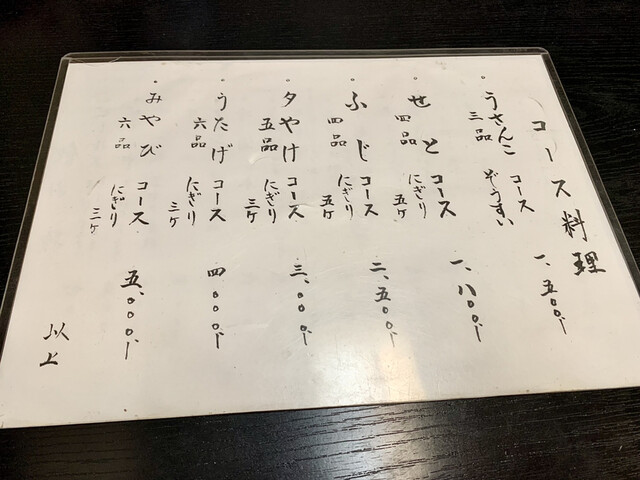 コース料理
。うさんこ コース 一、五〇〇.ー
三品 ぞうすい
。せと コース 一、八〇〇.ー
四品 にぎり 五ヶ
。ふじ コース 二、五〇〇.ー
四品 にぎり 五ヶ
。夕やけ コース 三、〇〇〇.ー
五品 にぎり 三ヶ
。うたげ コース 四〇〇〇.ー
六品 にぎり 三ヶ
。みやび コース 五、〇〇〇.ー
六品 にぎり 三ヶ
以上